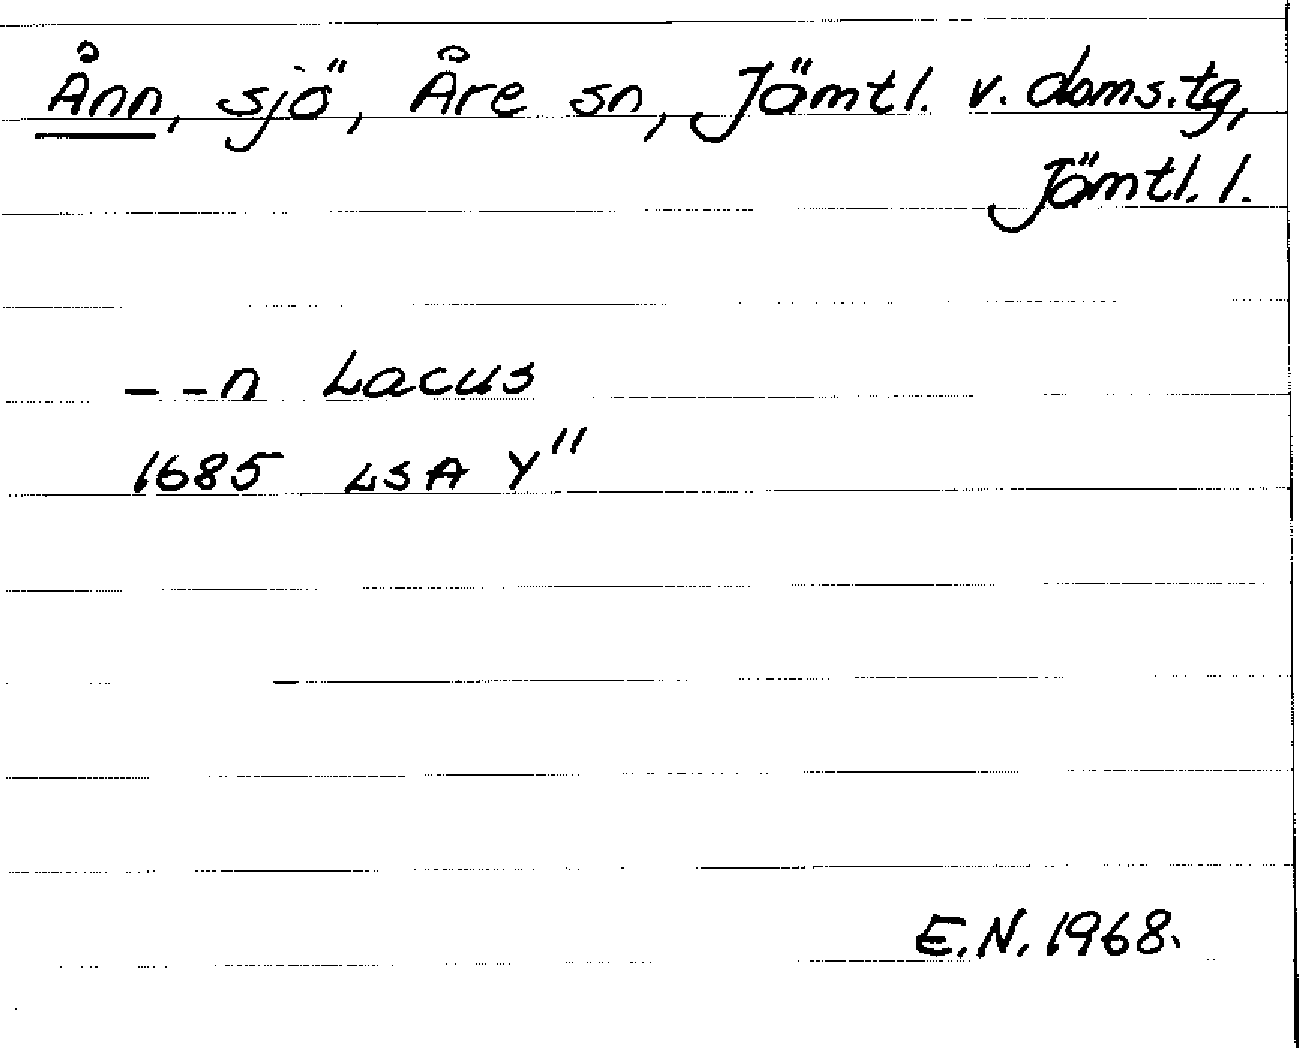 Ånn, sjö, Åre sn, Jämtl. v. doms.tg,
Jämtl. l.
– – n Lacus
1685 LSA Y"
E.N. 1968.